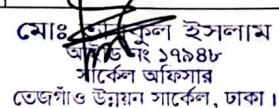 মোঃ কুল ইসলাম
নং ১৭৯৪৮
সার্কেল অফিসার
তেজগাঁও উন্নয়ন সার্কেল, ঢাকা